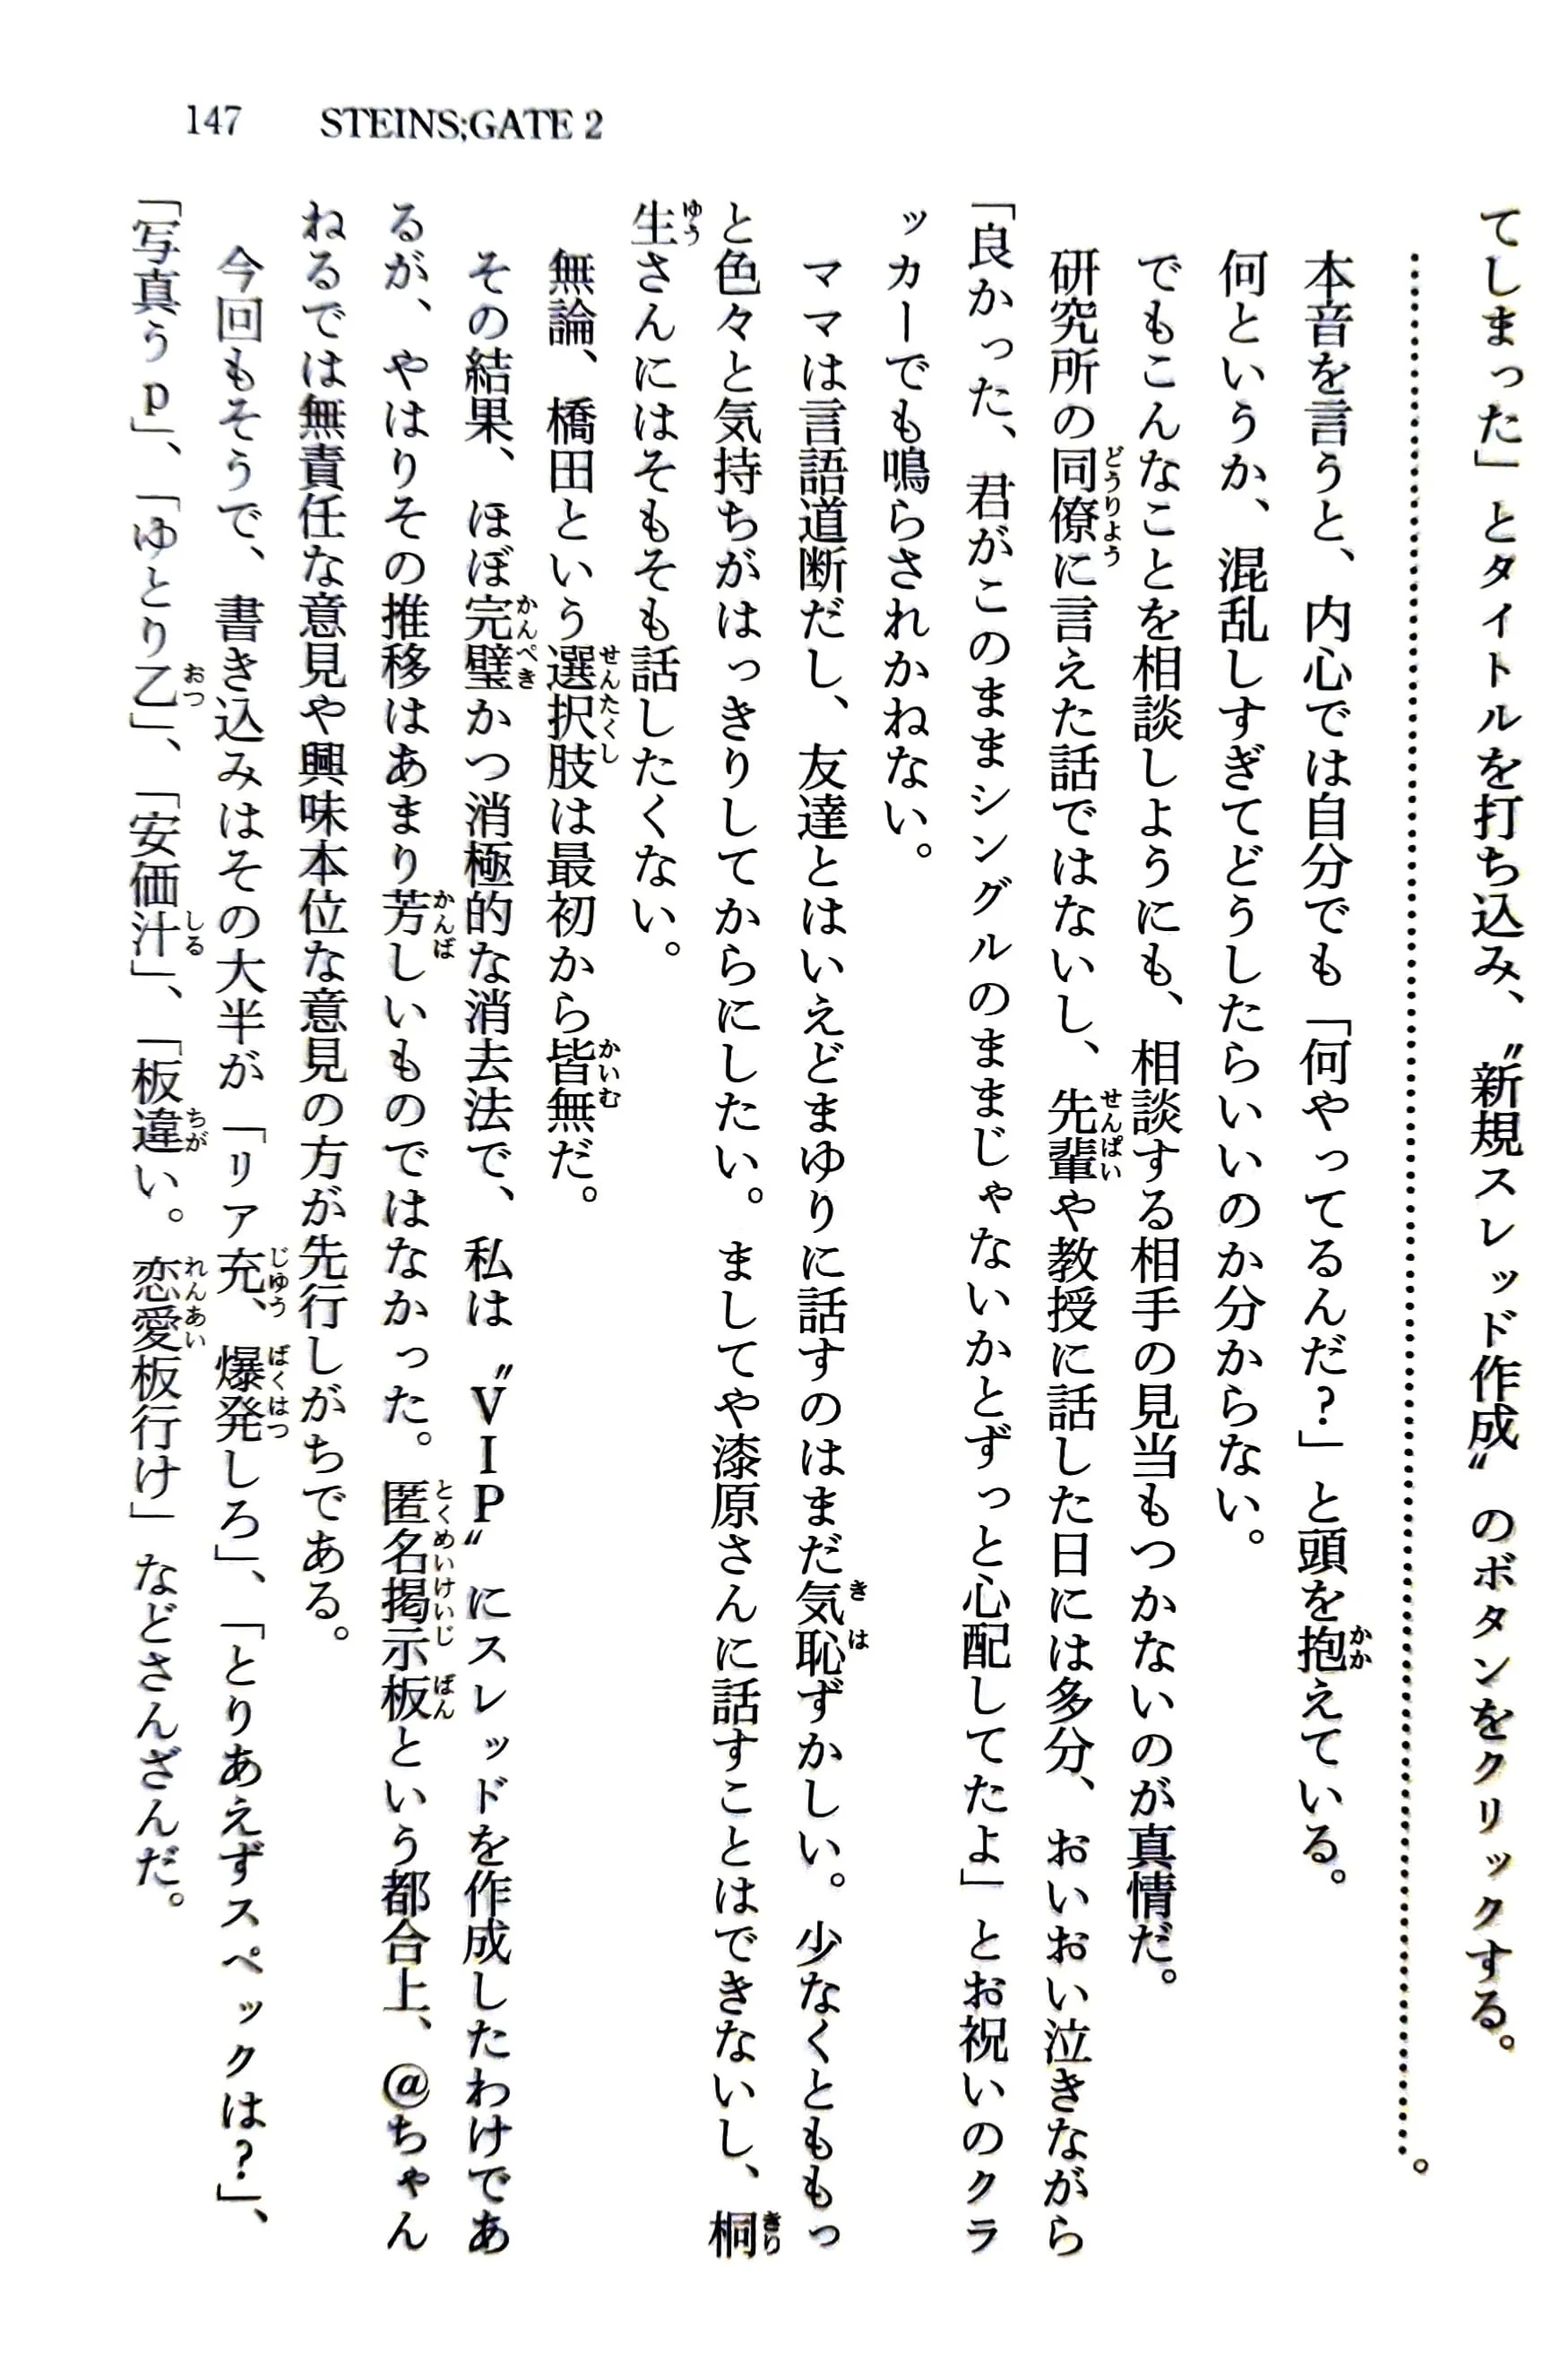 147 STEINS;GATE 2
てしまった」とタイトルを打ち込み、〝新規スレッド作成〟のボタンをクリックする。
……………………………………………………………………………………。
本音を言うと、内心では自分でも「何やってるんだ?」と頭を抱えている。
何というか、混乱しすぎてどうしたらいいのか分からない。
でもこんなことを相談しようにも、相談する相手の見当もつかないのが真情だ。
研究所の同僚に言えた話ではないし、先輩や教授に話した日には多分、おいおい泣きながら
「良かった、君がこのままシングルのままじゃないかとずっと心配してたよ」とお祝いのクラ
ッカーでも鳴らされかねない。
ママは言語道断だし、友達とはいえどまゆりに話すのはまだ気恥ずかしい。少なくとももっ
と色々と気持ちがはっきりしてからにしたい。ましてや漆原さんに話すことはできないし、桐
生さんにはそもそも話したくない。
無論、橋田という選択肢は最初から皆無だ。
その結果、ほぼ完璧かつ消極的な消去法で、私は〝VIP〟にスレッドを作成したわけであ
るが、やはりその推移はあまり芳しいものではなかった。匿名掲示板という都合上、@ちゃん
ねるでは無責任な意見や興味本位な意見の方が先行しがちである。
今回もそうで、書き込みはその大半が「リア充、爆発しろ」、「とりあえずスペックは?」、
「写真うp」、「ゆとり乙」、「安価汁」、「板違い。恋愛板行け」などさんざんだ。